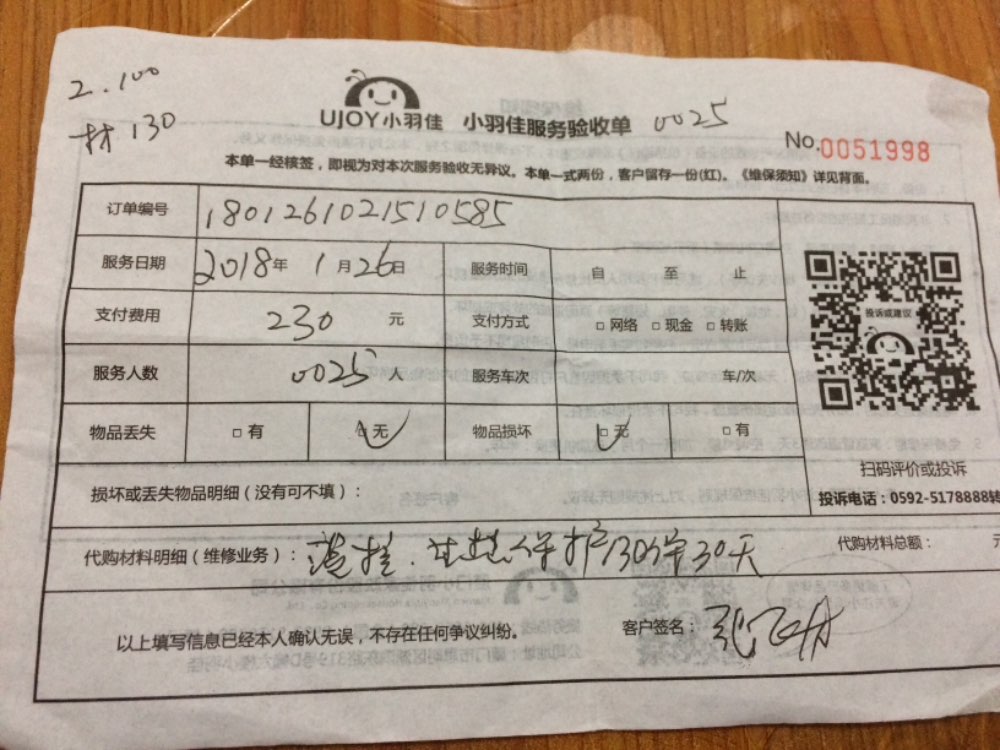 2.100
材130
UJOY小羽佳 小羽佳服务验收单 0025
No.0051998
本单一经核签，即视为对本次服务验收无异议。本单一式两份，客户留存一份(红)。《维保须知》详见背面。
订单编号 1801261021510585
服务日期 2018年1月26日 服务时间 自 至 止
支付费用 230 元 支付方式 □网络 □现金 □转账
投诉或建议
服务人数 0025 人 服务车次 车/次
物品丢失 □有 □无 物品损坏 □无 □有
扫码评价或投诉
损坏或丢失物品明细（没有可不填）：
投诉电话：0592-5178888转
代购材料明细（维修业务）： 保护130 30天
代购材料总额： 元
以上填写信息已经本人确认无误，不存在任何争议纠纷。 客户签名：